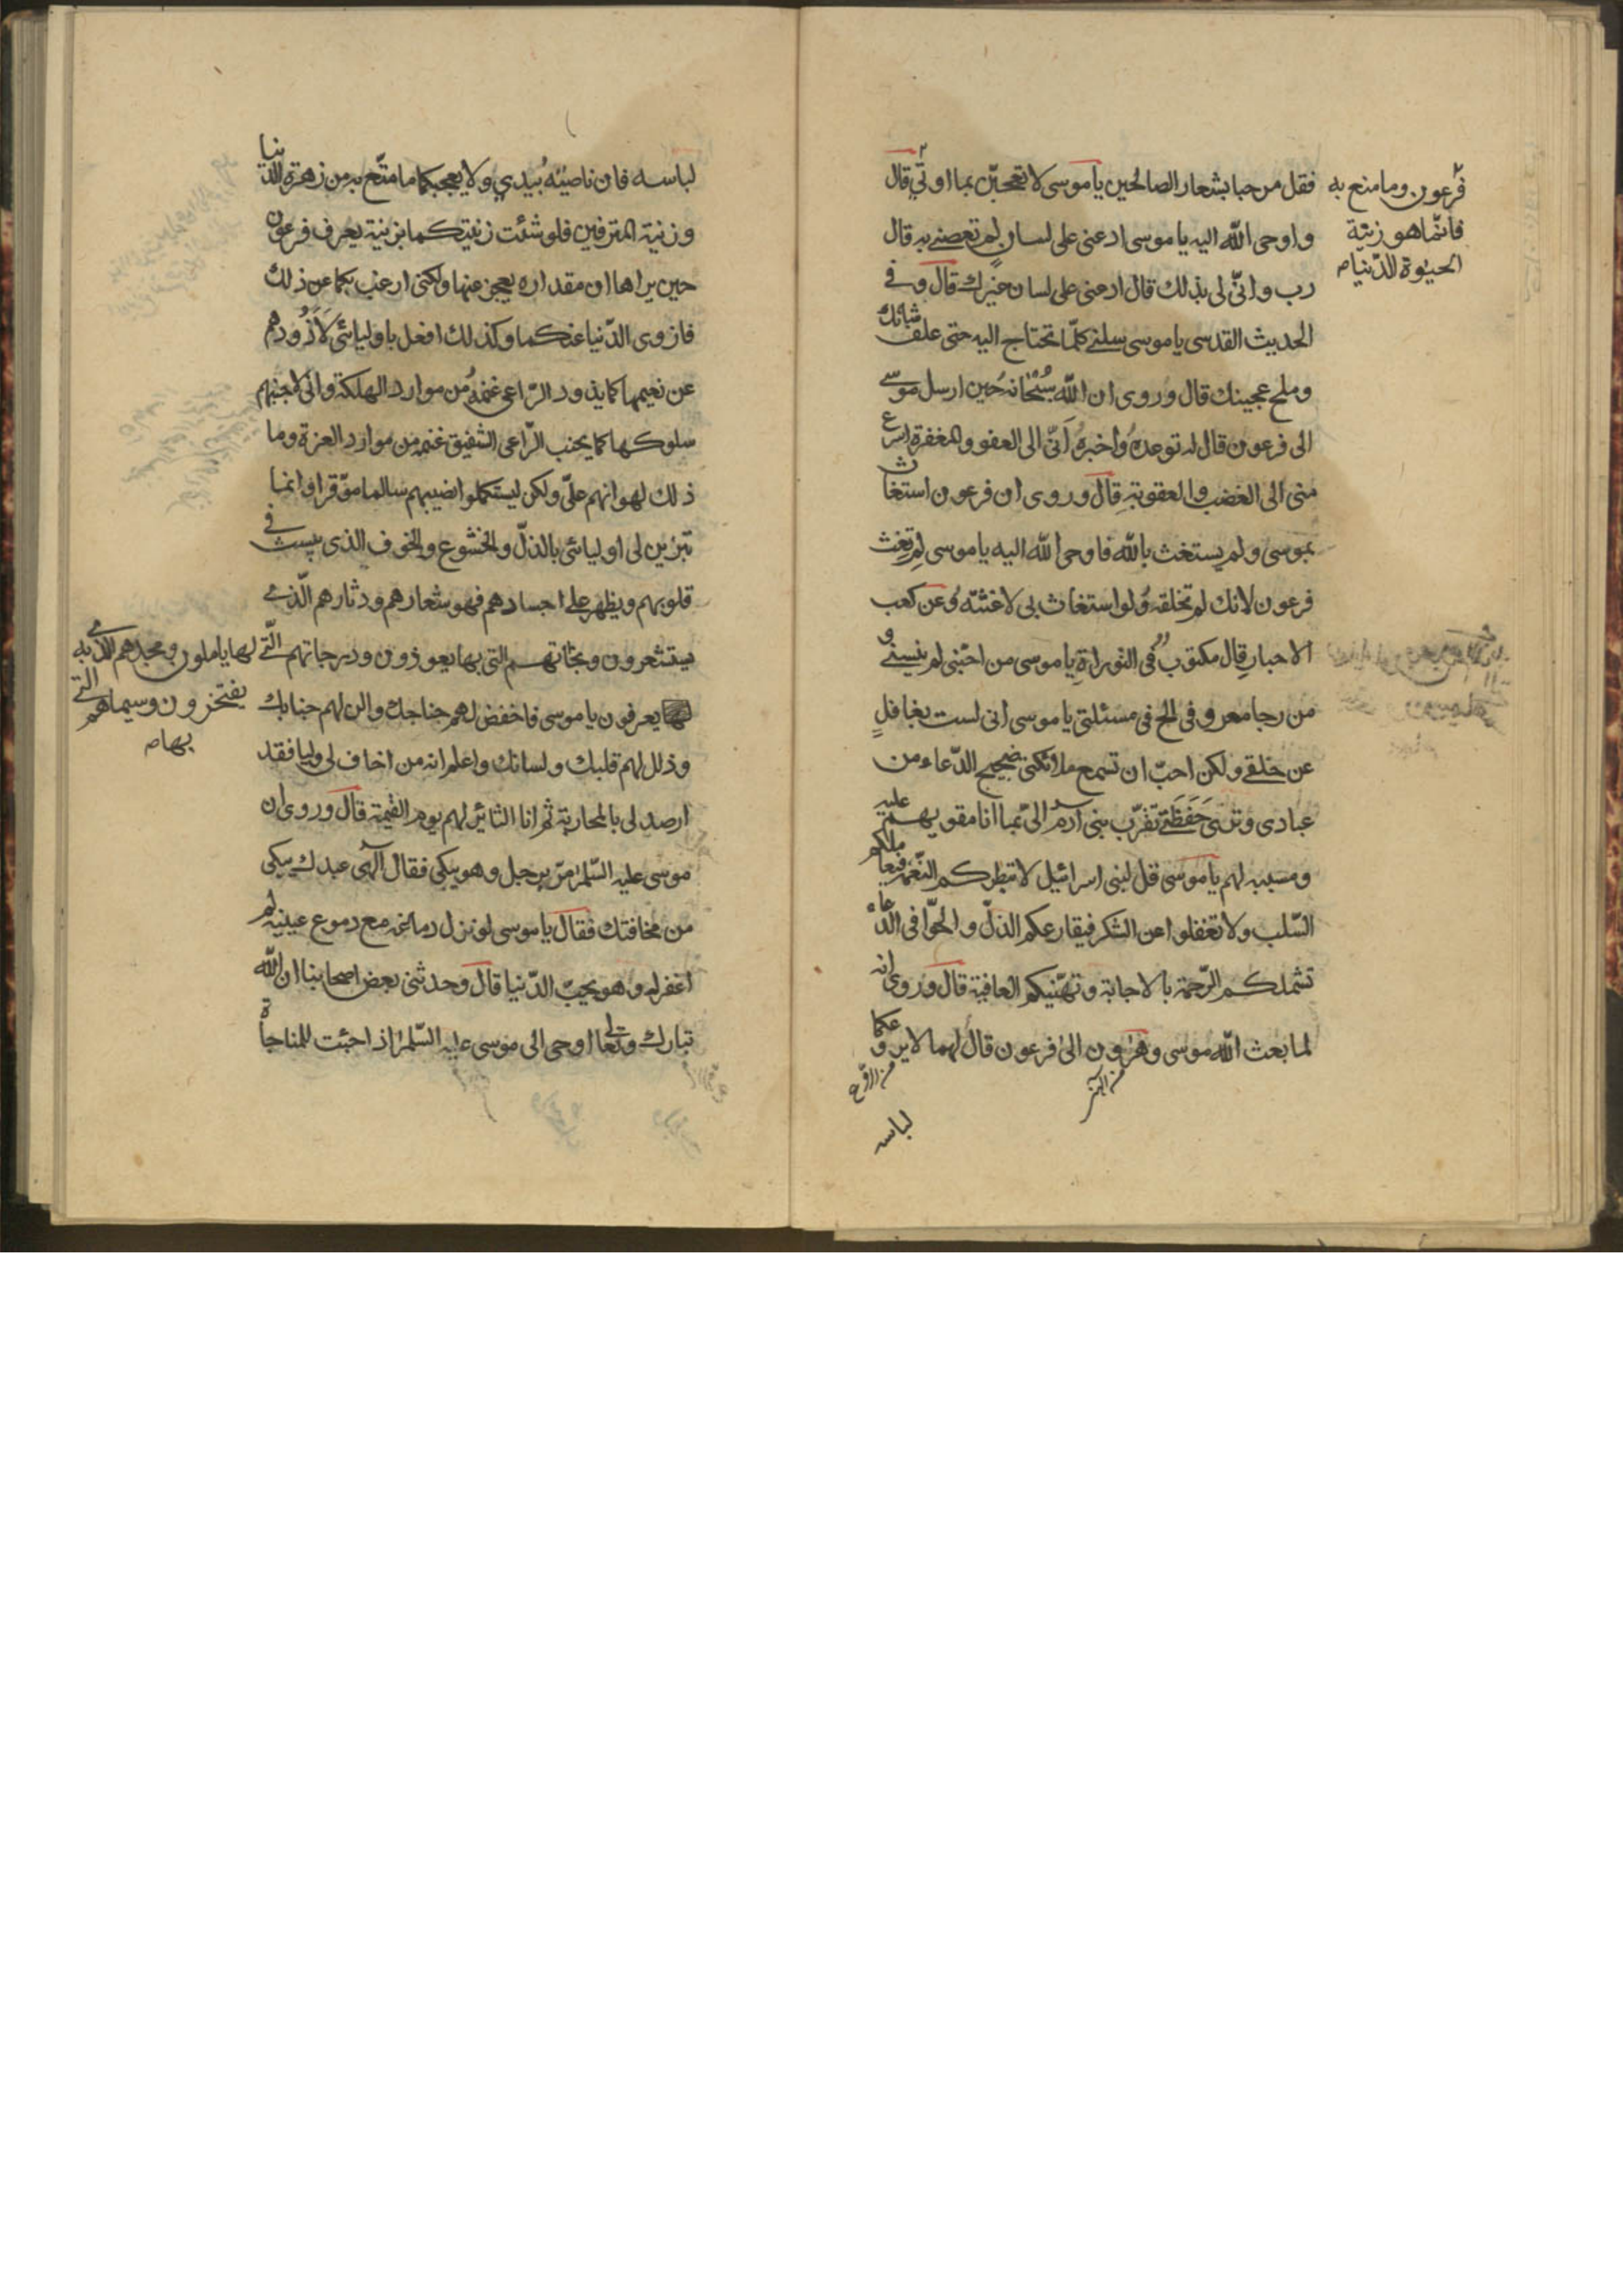 فقل مرحبا بشعار الصالحين يا موسى لا تعجبن بما اوتي قال
فرعون وما متع به
فانما هو زينة
الحيوة الدنيا ص
واوحى الله اليه يا موسى ادعنى على لسان لم تعصنى به قال
رب وانى لى بذلك قال ادعنى على لسان غيرك قال وفى
الحديث القدسى يا موسى سلنى كلما تحتاج اليه حتى علف شاتك
وملح عجينك قال وروى ان الله سبحانه حين ارسل موسى
الى فرعون قال له توعده واخبره انى الى العفو والمغفرة اسرع
منى الى الغضب والعقوبة قال وروى ان فرعون استغاث
بموسى ولم يستغث بالله فاوحى الله اليه يا موسى لم تغث
فرعون لانك لم تخلقه ولو استغاث بى لاغثته وعن كعب
الاحبار قال مكتوب فى التوراة يا موسى من احبنى لم ينسنى و
من رجا معروفى الح فى مسئلتى يا موسى انى لست بغافل
عن خلقى ولكن احب ان تسمع ملائكتى ضجيج الدعاء من
عبادى وترى حفظتى تقرب بنى آدم الى بما انا مقويهم عليه
ومسببه لهم يا موسى قل لبنى اسرائيل لا تبطرنكم النعمة فيعاجلكم
السلب ولا تغفلوا عن الشكر فيقارعكم الذل والحوا فى الدعاء
تشملكم الرحمة بالاجابة وتهنيكم العافية قال وروى انه
لما بعث الله موسى وهرون الى فرعون قال لهما لا يروعكما
لباسه
لباسه فان ناصيته بيدي ولا يعجبكما ما متع به من زهرة الدنيا
وزينة المترفين فلو شئت زينتكما بزينة يعرف فرعون
حين يراها ان مقداره يعجز عنها ولكنى ارغب بكما عن ذلك
فازوى الدنيا عنكما وكذلك افعل باوليائى لاذودهم
عن نعيمها كما يذود الراعى غنمه من موارد الهلكة وانى لاجنبهم
سلوكها كما يجنب الراعى الشفيق غنمه من موارد العزة وما
ذلك لهوانهم على ولكن ليستكملوا نصيبهم سالما موفرا وانما
تيزين لى اوليائى بالذل والخشوع والخوف الذى يثبت فى
قلوبهم ويظهر على اجسادهم فهو شعارهم ودثارهم الذى
يستشعرون ونجاتهم التى بها يعوذون ودرجاتهم التى
لها ياملون ومجدهم الذى به
يفتخرون وسيماهم التى
بها ص
يعرفون يا موسى فاخفض لهم جناحك والن لهم جنابك
وذلل لهم قلبك ولسانك واعلم انه من اخاف لى وليا فقد
ارصد لى بالمحاربة ثم انا الثائر لهم يوم القيمة قال وروى ان
موسى عليه السلام مر برجل وهو يبكى فقال الهى عبدك يبكى
من مخافتك فقال يا موسى لو نزل دماغه مع دموع عينيه لم
اغفر له وهو يحب الدنيا قال وحدثنى بعض اصحابنا ان الله
تبارك وتعالى اوحى الى موسى عليه السلام اذا جئت للمناجاة